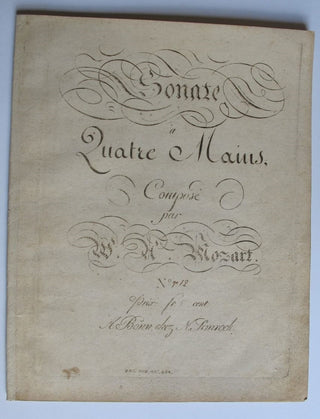 Sonate
à
Quatre Mains,
Composé
par
W. A. Mozart.
Prix
A Bonn chez N. Simrock.